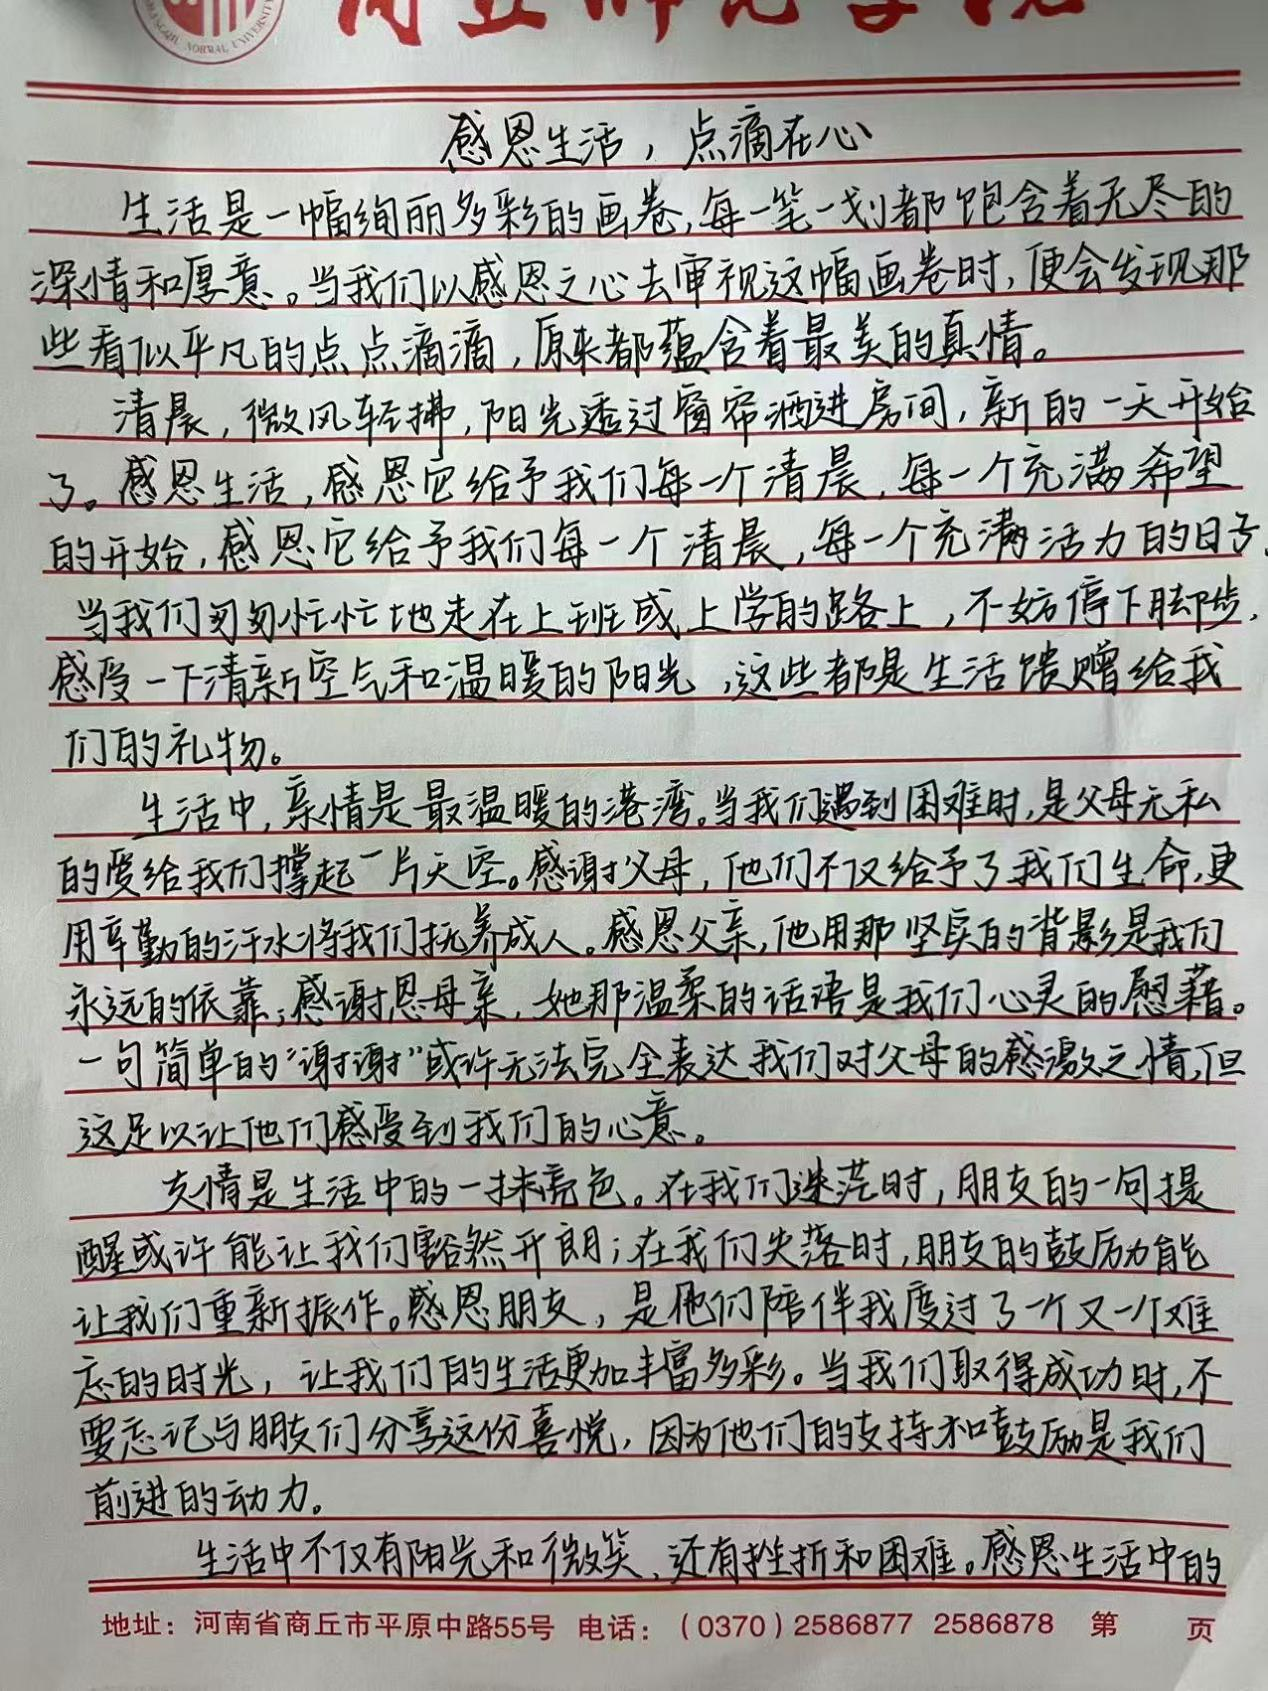 SHANGQIU NORMAL UNIVERSITY
商丘师范学院
感恩生活，点滴在心
生活是一幅绚丽多彩的画卷，每一笔一划都饱含着无尽的
深情和厚意。当我们以感恩之心去审视这幅画卷时，便会发现那
些看似平凡的点点滴滴，原来都蕴含着最美的真情。
清晨，微风轻拂，阳光透过窗帘洒进房间，新的一天开始
了。感恩生活，感恩它给予我们每一个清晨，每一个充满希望
的开始，感恩它给予我们每一个清晨，每一个充满活力的日子.
当我们匆匆忙忙地走在上班或上学的路上，不妨停下脚步，
感受一下清新空气和温暖的阳光，这些都是生活馈赠给我
们的礼物。
生活中，亲情是最温暖的港湾。当我们遇到困难时，是父母无私
的爱给我们撑起一片天空。感谢父母，他们不仅给予了我们生命，更
用辛勤的汗水将我们抚养成人。感恩父亲，他用那坚实的背影是我们
永远的依靠；感谢恩母亲，她那温柔的话语是我们心灵的慰藉。
一句简单的“谢谢”或许无法完全表达我们对父母的感激之情，但
这足以让他们感受到我们的心意。
友情是生活中的一抹亮色。在我们迷茫时，朋友的一句提
醒或许能让我们豁然开朗；在我们失落时，朋友的鼓励能
让我们重新振作。感恩朋友，是他们陪伴我度过了一个又一个难
忘的时光，让我们的生活更加丰富多彩。当我们取得成功时，不
要忘记与朋友们分享这份喜悦，因为他们的支持和鼓励是我们
前进的动力。
生活中不仅有阳光和微笑，还有挫折和困难。感恩生活中的
地址：河南省商丘市平原中路55号 电话：（0370）2586877 2586878 第 页